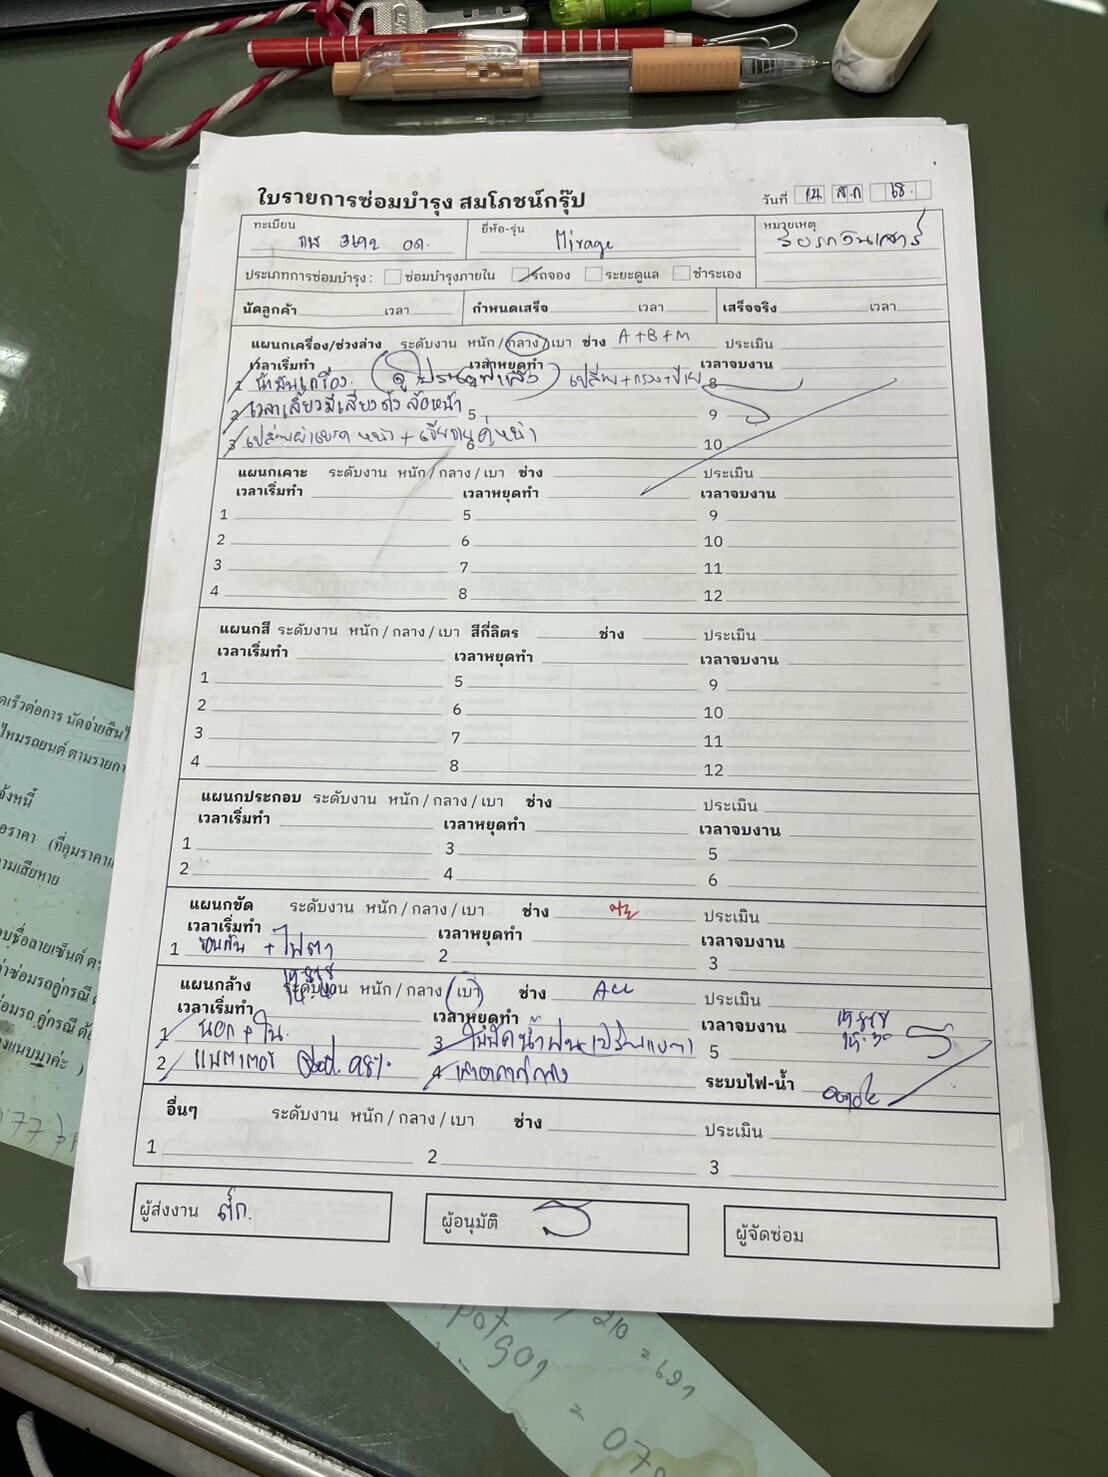 ใบรายการซ่อมบำรุง สมโภชน์กรุ๊ป
วันที่ 14 ส.ค 68.
ทะเบียน
ยี่ห้อ-รุ่น Mirage
หมายเหตุ รับรถวันเสาร์
ประเภทการซ่อมบำรุง : ซ่อมบำรุงภายใน รถจอง ระยะดูแล ชำระเอง
นัดลูกค้า เวลา กำหนดเสร็จ เวลา เสร็จจริง เวลา
แผนกเครื่อง/ช่วงล่าง ระดับงาน หนัก / กลาง / เบา ช่าง A+B+M ประเมิน
เวลาเริ่มทำ เวลาหยุดทำ เวลาจบงาน
1 น้ำมันเครื่อง. เปลี่ยน+กรอง 8
2 เวลาเลี้ยวมีเสียงดัง ล้อหน้า 5 9
3 เปลี่ยนผ้าเบรค หน้า + เจียจานคู่หน้า 10
แผนกเคาะ ระดับงาน หนัก / กลาง / เบา ช่าง ประเมิน
เวลาเริ่มทำ เวลาหยุดทำ เวลาจบงาน
1 5 9
2 6 10
3 7 11
4 8 12
แผนกสี ระดับงาน หนัก / กลาง / เบา สีกี่ลิตร ช่าง ประเมิน
เวลาเริ่มทำ เวลาหยุดทำ เวลาจบงาน
1 5 9
2 6 10
3 7 11
4 8 12
แผนกประกอบ ระดับงาน หนัก / กลาง / เบา ช่าง ประเมิน
เวลาเริ่มทำ เวลาหยุดทำ เวลาจบงาน
1 3 5
2 4 6
แผนกขัด ระดับงาน หนัก / กลาง / เบา ช่าง ประเมิน
เวลาเริ่มทำ เวลาหยุดทำ เวลาจบงาน
1 + ไฟตา 2 3
แผนกล้าง ระดับงาน หนัก / กลาง / เบา ช่าง ประเมิน
เวลาเริ่มทำ เวลาหยุดทำ เวลาจบงาน
1 นอก + ใน. 3 ใบปัดน้ำฝน 5
2 แบตเตอรี่ 4 ระบบไฟ-น้ำ
อื่นๆ ระดับงาน หนัก / กลาง / เบา ช่าง ประเมิน
1 2 3
ผู้ส่งงาน ผู้อนุมัติ ผู้จัดซ่อม